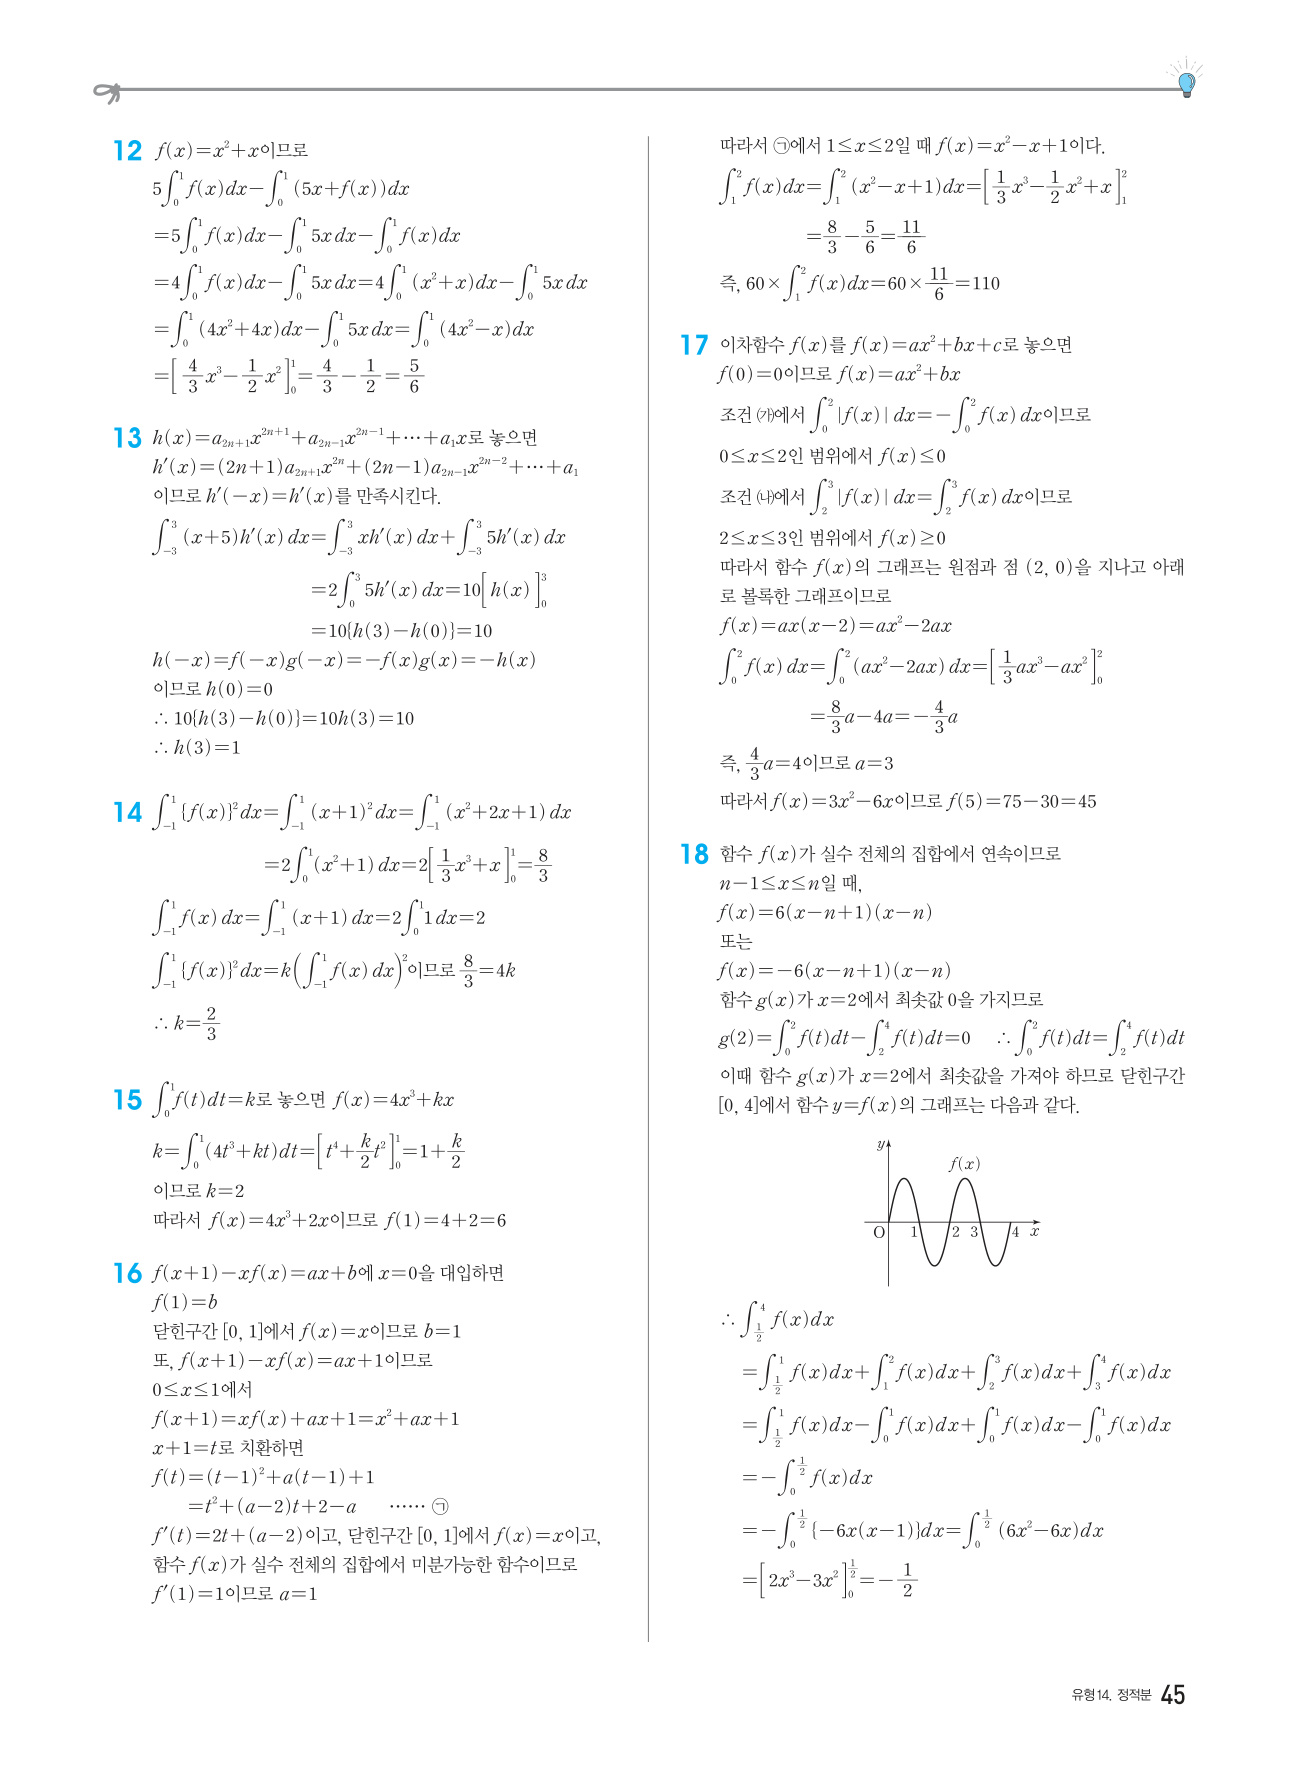 12 f(x)=x²+x이므로
5∫₀¹ f(x)dx−∫₀¹ (5x+f(x))dx
=5∫₀¹ f(x)dx−∫₀¹ 5x dx−∫₀¹ f(x)dx
=4∫₀¹ f(x)dx−∫₀¹ 5x dx=4∫₀¹ (x²+x)dx−∫₀¹ 5x dx
=∫₀¹ (4x²+4x)dx−∫₀¹ 5x dx=∫₀¹ (4x²−x)dx
=[4/3 x³−1/2 x²]₀¹=4/3−1/2=5/6
13 h(x)=a₂ₙ₊₁x²ⁿ⁺¹+a₂ₙ₋₁x²ⁿ⁻¹+⋯+a₁x로 놓으면
h′(x)=(2n+1)a₂ₙ₊₁x²ⁿ+(2n−1)a₂ₙ₋₁x²ⁿ⁻²+⋯+a₁
이므로 h′(−x)=h′(x)를 만족시킨다.
∫₋₃³ (x+5)h′(x) dx=∫₋₃³ xh′(x) dx+∫₋₃³ 5h′(x) dx
=2∫₀³ 5h′(x) dx=10[h(x)]₀³
=10{h(3)−h(0)}=10
h(−x)=f(−x)g(−x)=−f(x)g(x)=−h(x)
이므로 h(0)=0
∴ 10{h(3)−h(0)}=10h(3)=10
∴ h(3)=1
14 ∫₋₁¹ {f(x)}² dx=∫₋₁¹ (x+1)² dx=∫₋₁¹ (x²+2x+1) dx
=2∫₀¹ (x²+1) dx=2[1/3 x³+x]₀¹=8/3
∫₋₁¹ f(x) dx=∫₋₁¹ (x+1) dx=2∫₀¹ 1 dx=2
∫₋₁¹ {f(x)}² dx=k(∫₋₁¹ f(x) dx)²이므로 8/3=4k
∴ k=2/3
15 ∫₀¹ f(t)dt=k로 놓으면 f(x)=4x³+kx
k=∫₀¹ (4t³+kt)dt=[t⁴+k/2 t²]₀¹=1+k/2
이므로 k=2
따라서 f(x)=4x³+2x이므로 f(1)=4+2=6
16 f(x+1)−xf(x)=ax+b에 x=0을 대입하면
f(1)=b
닫힌구간 [0, 1]에서 f(x)=x이므로 b=1
또, f(x+1)−xf(x)=ax+1이므로
0≤x≤1에서
f(x+1)=xf(x)+ax+1=x²+ax+1
x+1=t로 치환하면
f(t)=(t−1)²+a(t−1)+1
=t²+(a−2)t+2−a ⋯⋯ ㉠
f′(t)=2t+(a−2)이고, 닫힌구간 [0, 1]에서 f(x)=x이고,
함수 f(x)가 실수 전체의 집합에서 미분가능한 함수이므로
f′(1)=1이므로 a=1
따라서 ㉠에서 1≤x≤2일 때 f(x)=x²−x+1이다.
∫₁² f(x)dx=∫₁² (x²−x+1)dx=[1/3 x³−1/2 x²+x]₁²
=8/3−5/6=11/6
즉, 60×∫₁² f(x)dx=60×11/6=110
17 이차함수 f(x)를 f(x)=ax²+bx+c로 놓으면
f(0)=0이므로 f(x)=ax²+bx
조건 ㈎에서 ∫₀² |f(x)| dx=−∫₀² f(x) dx이므로
0≤x≤2인 범위에서 f(x)≤0
조건 ㈏에서 ∫₂³ |f(x)| dx=∫₂³ f(x) dx이므로
2≤x≤3인 범위에서 f(x)≥0
따라서 함수 f(x)의 그래프는 원점과 점 (2, 0)을 지나고 아래
로 볼록한 그래프이므로
f(x)=ax(x−2)=ax²−2ax
∫₀² f(x) dx=∫₀² (ax²−2ax) dx=[1/3 ax³−ax²]₀²
=8/3 a−4a=−4/3 a
즉, 4/3 a=4이므로 a=3
따라서 f(x)=3x²−6x이므로 f(5)=75−30=45
18 함수 f(x)가 실수 전체의 집합에서 연속이므로
n−1≤x≤n일 때,
f(x)=6(x−n+1)(x−n)
또는
f(x)=−6(x−n+1)(x−n)
함수 g(x)가 x=2에서 최솟값 0을 가지므로
g(2)=∫₀² f(t)dt−∫₂⁴ f(t)dt=0 ∴ ∫₀² f(t)dt=∫₂⁴ f(t)dt
이때 함수 g(x)가 x=2에서 최솟값을 가져야 하므로 닫힌구간
[0, 4]에서 함수 y=f(x)의 그래프는 다음과 같다.
y
f(x)
O 1 2 3 4 x
∴ ∫_{1/2}^{4} f(x)dx
=∫_{1/2}^{1} f(x)dx+∫₁² f(x)dx+∫₂³ f(x)dx+∫₃⁴ f(x)dx
=∫_{1/2}^{1} f(x)dx−∫₀¹ f(x)dx+∫₀¹ f(x)dx−∫₀¹ f(x)dx
=−∫_{0}^{1/2} f(x)dx
=−∫_{0}^{1/2} {−6x(x−1)}dx=∫_{0}^{1/2} (6x²−6x)dx
=[2x³−3x²]_{0}^{1/2}=−1/2
유형14. 정적분 45